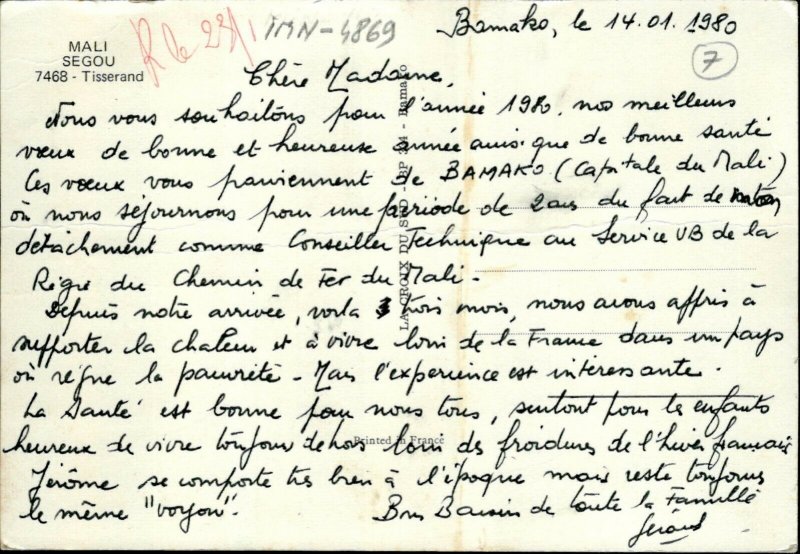 Bamako, le 14.01.1980
MALI
SEGOU
7468 - Tisserand
R le 23/1
IMN-4869
7
Chère Madame,
Nous vous souhaitons pour l'année 1980, nos meilleurs
vœux de bonne et heureuse année ainsi que de bonne santé
Ces vœux vous parviennent de BAMAKO (Capitale du Mali)
où nous séjournons pour une période de 2 ans du fait de
détachement comme Conseiller Technique au Service VB de la
Régie du Chemin de Fer du Mali.
Depuis notre arrivée, voila 3 trois mois, nous avons appris à
supporter la chaleur et à vivre loin de la France dans un pays
où règne la pauvreté. Mais l'expérience est intéressante.
La Santé est bonne pour nous tous, surtout pour les enfants
heureux de vivre toujour dehors loin des froidures de l'hiver français
Jérôme se comporte très bien à l'époque mais reste toujours
le même "voyou".
Bons Baisers de toute la Famille
Gérard
LA CROIX DU SUD - BP 354 - Bamako
Printed in France